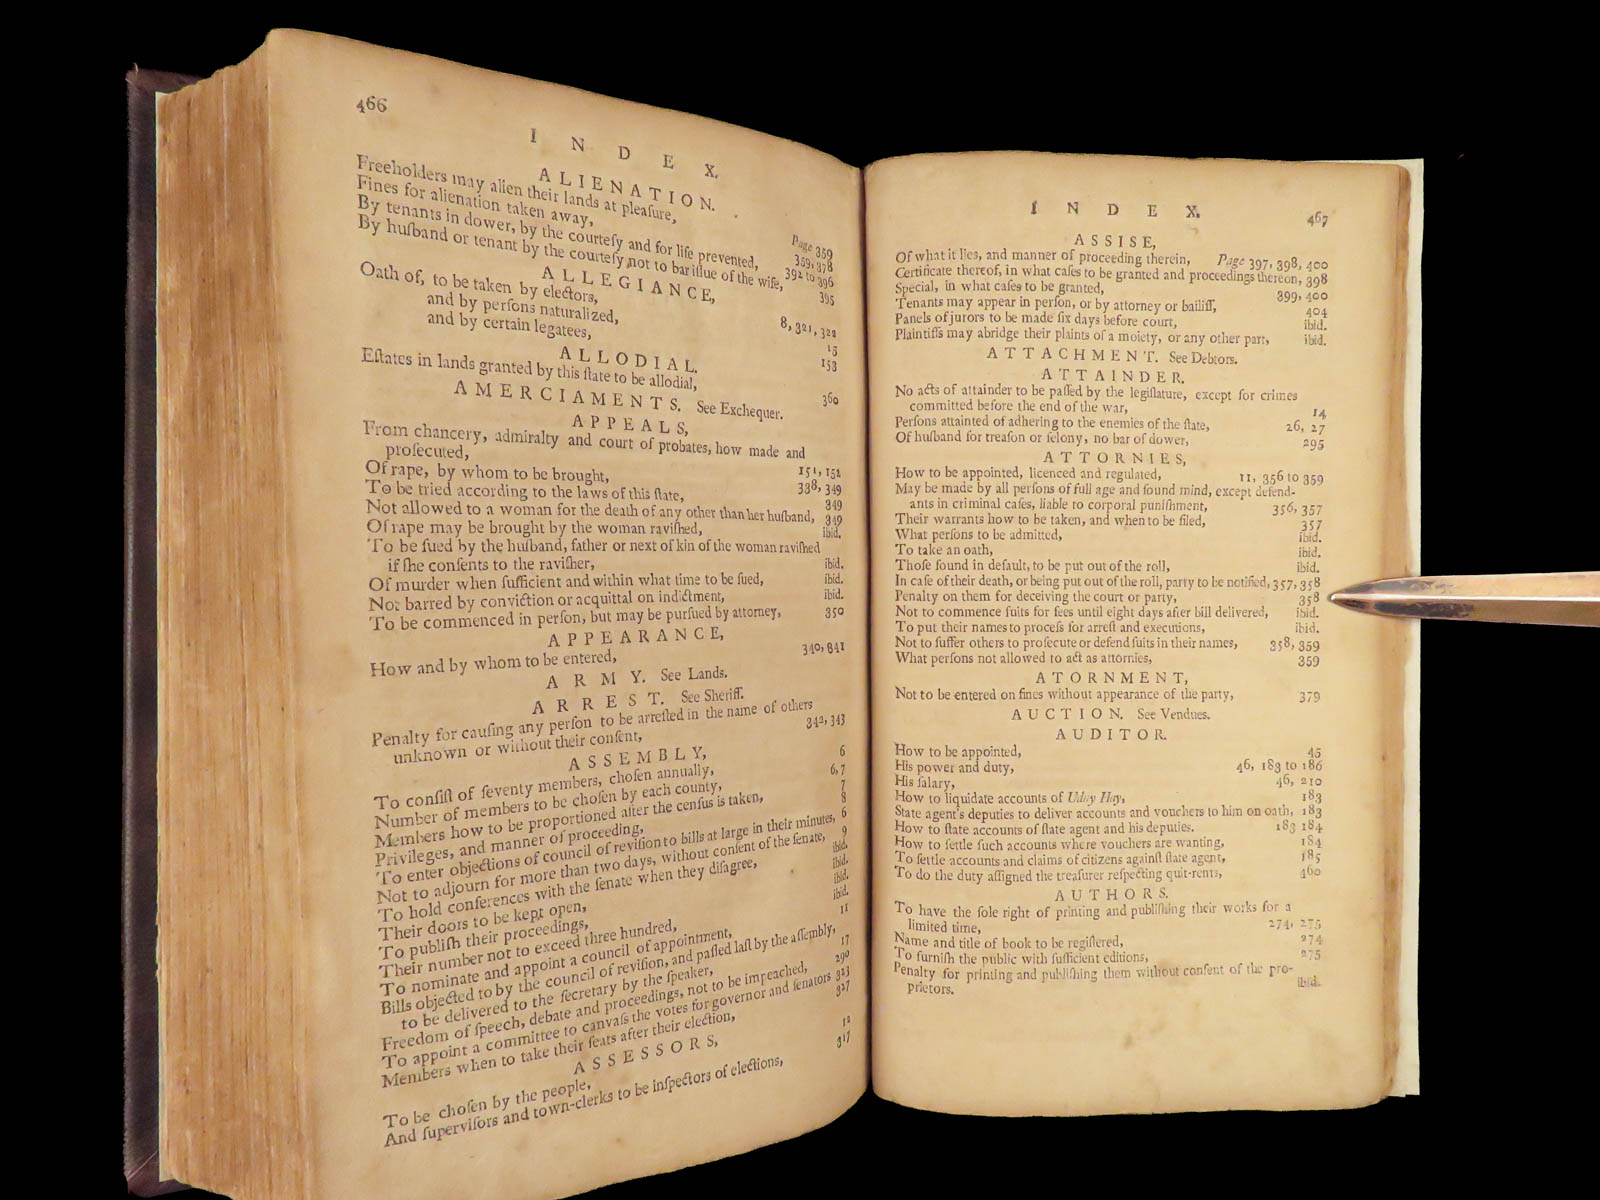 466
I N D E X.
A L I E N A T I O N.
Freeholders may alien their lands at pleaſure, Page 359
Fines for alienation taken away, 359, 378
By tenants in dower, by the courteſy and for life prevented, 392 to 396
By huſband or tenant by the courteſy not to bar iſſue of the wife, 395
A L L E G I A N C E,
Oath of, to be taken by electors, 8, 321, 322
and by perſons naturalized, 15
and by certain legatees, 153
A L L O D I A L.
Eſtates in lands granted by this ſtate to be allodial, 360
A M E R C I A M E N T S. See Exchequer.
A P P E A L S,
From chancery, admiralty and court of probates, how made and
proſecuted, 151, 152
Of rape, by whom to be brought, 338, 349
To be tried according to the laws of this ſtate, 349
Not allowed to a woman for the death of any other than her huſband, 349
Of rape may be brought by the woman raviſhed, ibid.
To be ſued by the huſband, father or next of kin of the woman raviſhed
if ſhe conſents to the raviſher, ibid.
Of murder when ſufficient and within what time to be ſued, ibid.
Not barred by conviction or acquittal on indictment, ibid.
To be commenced in perſon, but may be purſued by attorney, 350
A P P E A R A N C E,
How and by whom to be entered, 340, 841
A R M Y. See Lands.
A R R E S T. See Sheriff.
Penalty for cauſing any perſon to be arreſted in the name of others
unknown or without their conſent, 342, 343
A S S E M B L Y,
To conſiſt of ſeventy members, choſen annually, 6
Number of members to be choſen by each county, 6, 7
Members how to be proportioned after the cenſus is taken, 7
Privileges, and manner of proceeding, 8
To enter objections of council of reviſion to bills at large in their minutes, 6
Not to adjourn for more than two days, without conſent of the ſenate, 9
To hold conferences with the ſenate when they diſagree, ibid.
Their doors to be kept open, ibid.
To publiſh their proceedings, ibid.
Their number not to exceed three hundred, ibid.
To nominate and appoint a council of appointment, 11
Bills objected to by the council of reviſion, and paſſed laſt by the aſſembly,
to be delivered to the ſecretary by the ſpeaker, 17
Freedom of ſpeech, debate and proceedings, not to be impeached, 290
To appoint a committee to canvaſs the votes for governor and ſenators 323
Members when to take their ſeats after their election, 327
A S S E S S O R S,
To be choſen by the people, 12
And ſuperviſors and town-clerks to be inſpectors of elections, 317
I N D E X. 467
A S S I S E,
Of what it lies, and manner of proceeding therein, Page 397, 398, 400
Certificate thereof, in what caſes to be granted and proceedings thereon, 398
Special, in what caſes to be granted, 399, 400
Tenants may appear in perſon, or by attorney or bailiff, 404
Panels of jurors to be made ſix days before court, ibid.
Plaintiffs may abridge their plaints of a moiety, or any other part, ibid.
A T T A C H M E N T. See Debtors.
A T T A I N D E R.
No acts of attainder to be paſſed by the legiſlature, except for crimes
committed before the end of the war, 14
Perſons attainted of adhering to the enemies of the ſtate, 26, 27
Of huſband for treaſon or felony, no bar of dower, 295
A T T O R N I E S,
How to be appointed, licenced and regulated, 11, 356 to 359
May be made by all perſons of full age and ſound mind, except defend-
ants in criminal caſes, liable to corporal puniſhment, 356, 357
Their warrants how to be taken, and when to be filed, 357
What perſons to be admitted, ibid.
To take an oath, ibid.
Thoſe found in default, to be put out of the roll, ibid.
In caſe of their death, or being put out of the roll, party to be notified, 357, 358
Penalty on them for deceiving the court or party, 358
Not to commence ſuits for fees until eight days after bill delivered, ibid.
To put their names to proceſs for arreſt and executions, ibid.
Not to ſuffer others to proſecute or defend ſuits in their names, 358, 359
What perſons not allowed to act as attornies, 359
A T O R N M E N T,
Not to be entered on fines without appearance of the party, 379
A U C T I O N. See Vendues.
A U D I T O R.
How to be appointed, 45
His power and duty, 46, 183 to 186
His ſalary, 46, 210
How to liquidate accounts of Uday Hay, 183
State agent's deputies to deliver accounts and vouchers to him on oath, 183
How to ſtate accounts of ſtate agent and his deputies. 183 184
How to ſettle ſuch accounts where vouchers are wanting, 184
To ſettle accounts and claims of citizens againſt ſtate agent, 185
To do the duty aſſigned the treaſurer reſpecting quit-rents, 460
A U T H O R S.
To have the ſole right of printing and publiſhing their works for a
limited time, 274, 275
Name and title of book to be regiſtered, 274
To furniſh the public with ſufficient editions, 275
Penalty for printing and publiſhing them without conſent of the pro-
prietors. ibid.